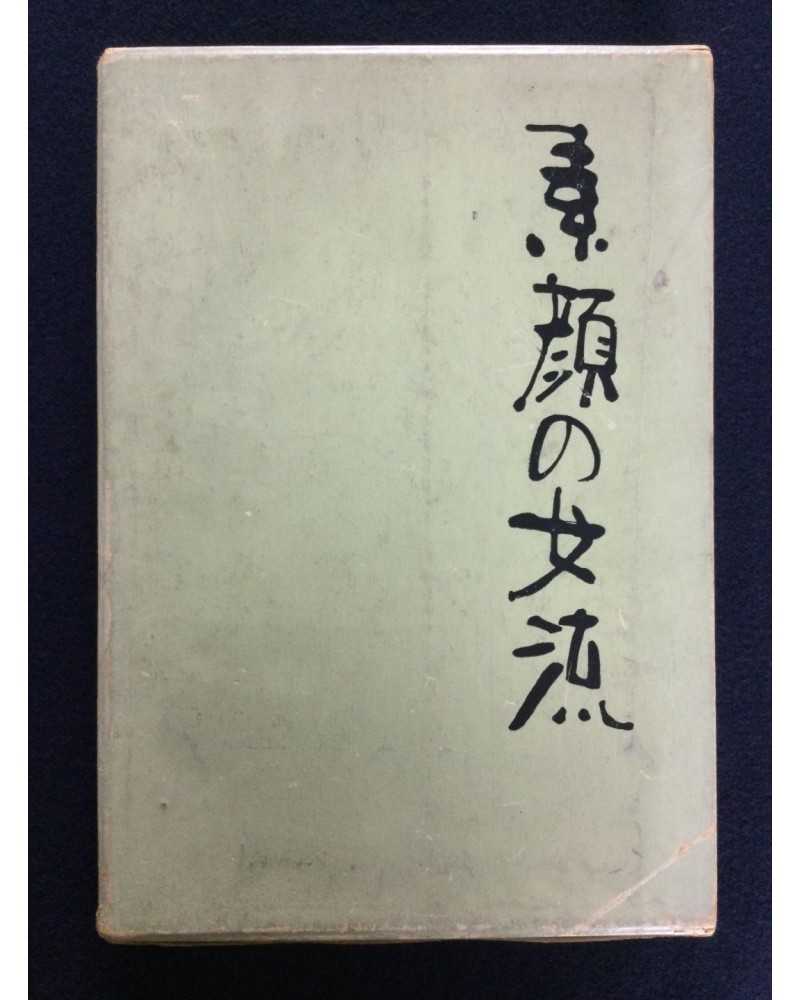 素顔の女流